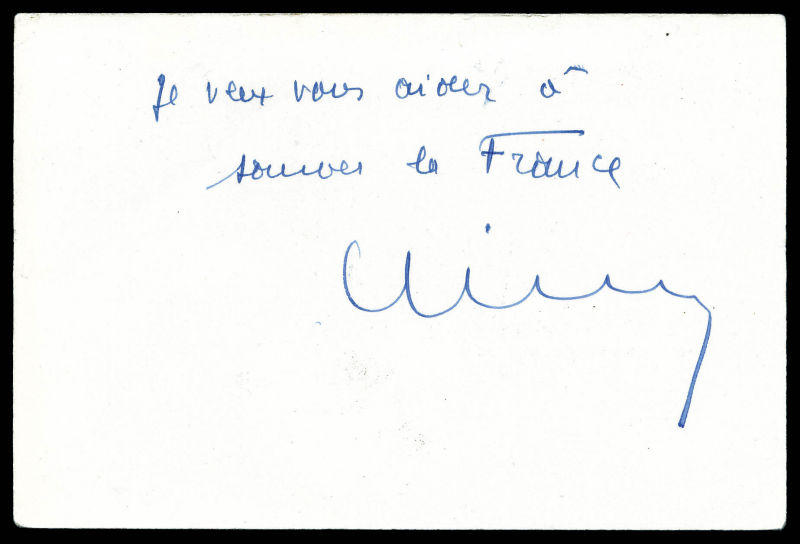 Je veux vous aider à
sauver la France